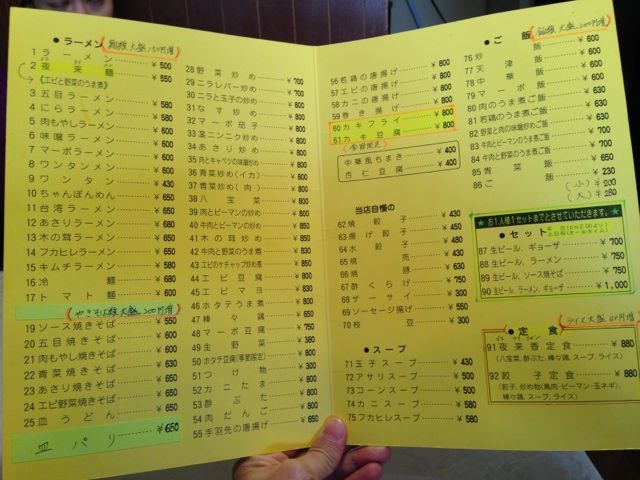 ●ラーメン
麺類 大盛 150円増
1 ラーメン ¥500
2 夜来麺 ¥550
《エビと野菜のうま煮》
3 五目ラーメン ¥580
4 にらラーメン ¥580
5 肉もやしラーメン ¥580
6 味噌ラーメン ¥580
7 マーボラーメン ¥580
8 ワンタンメン ¥580
9 ワンタン ¥430
10 ちゃんぽんめん ¥550
11 台湾ラーメン ¥550
12 あさりラーメン ¥580
13 木の茸ラーメン ¥550
14 フカヒレラーメン ¥580
15 キムチラーメン ¥580
16 冷麺 ¥680
17 トマト麺 ¥680
やきそば類 大盛 200円増
19 ソース焼きそば ¥550
20 五目焼きそば ¥550
21 肉もやし焼きそば ¥650
22 青菜焼きそば ¥650
23 あさり焼きそば ¥650
24 エビ野菜焼きそば ¥650
25 皿うどん ¥650
皿パリ ¥650
28 野菜炒め ¥700
29 ニラレバー炒め ¥700
30 ニラと玉子の炒め ¥700
31 なす炒め ¥700
32 マーボ茄子 ¥700
33 茎ニンニク炒め ¥700
34 あさり炒め ¥700
35 肉とキャベツの味噌炒め
36 青菜炒め(イカ)
37 青菜炒め(肉)
38 八宝菜
39 肉とピーマンの炒め
40 肉と野菜うま煮
41 木の茸炒め
42 牛肉と野菜のうま煮
43 エビのケチャップ炒め
44 エビ豆腐
45 エビマヨ
46 ホタテうま煮
47 棒々鶏
48 マーボ豆腐
49 生野菜
50 ホタテ豆腐(季節限定)
51 つけ物
52 カニたま
53 酢ぶた
54 肉だんご
55 手羽先の唐揚げ
56 若鶏の唐揚げ ¥800
57 エビの唐揚げ ¥800
58 カニの唐揚げ ¥800
59 巻き揚げ ¥800
60 カキフライ ¥800
61 カキ豆腐 ¥800
(季節限定)
中華風ちまき ¥400
杏仁豆腐 ¥400
当店自慢の
62 焼餃子 ¥430
63 揚げ餃子 ¥450
64 水餃子 ¥480
65 焼売
66 焼豚
67 酢くらげ
68 ザーサイ
69 ソーセージ揚げ
70 枝豆
●スープ
71 玉子スープ ¥430
72 アサリスープ ¥500
73 コーンスープ ¥500
74 カニスープ ¥580
75 フカヒレスープ ¥580
●ご飯
飯類 大盛 200円増
76 炒飯 ¥600
77 天津飯 ¥600
78 中華飯 ¥630
79 マーボ飯 ¥600
80 肉のうま煮ご飯 ¥600
81 若鶏のうま煮ご飯 ¥680
82 野菜と肉の味噌炒めご飯 ¥680
83 牛肉と野菜うま煮ご飯
84 牛肉と野菜うま煮ご飯
85 青菜飯 ¥650
86 ご飯
(小) ¥200
(大) ¥280
★お1人様1セットまでとさせていただきます。★
●セット
87 生ビール、ギョーザ ¥700
88 生ビール、ラーメン ¥750
89 生ビール、ソース焼きそば ¥750
90 生ビール、ラーメン、ギョーザ ¥1,000
ライス大盛 50円増
●定食
91 夜来香定食 ¥880
(八宝菜、酢ぶた、棒々鶏、スープ、ライス)
92 餃子定食 ¥580
(餃子、炒め物(鳥肉・ピーマン・玉ネギ)、
棒々鶏、スープ、ライス)